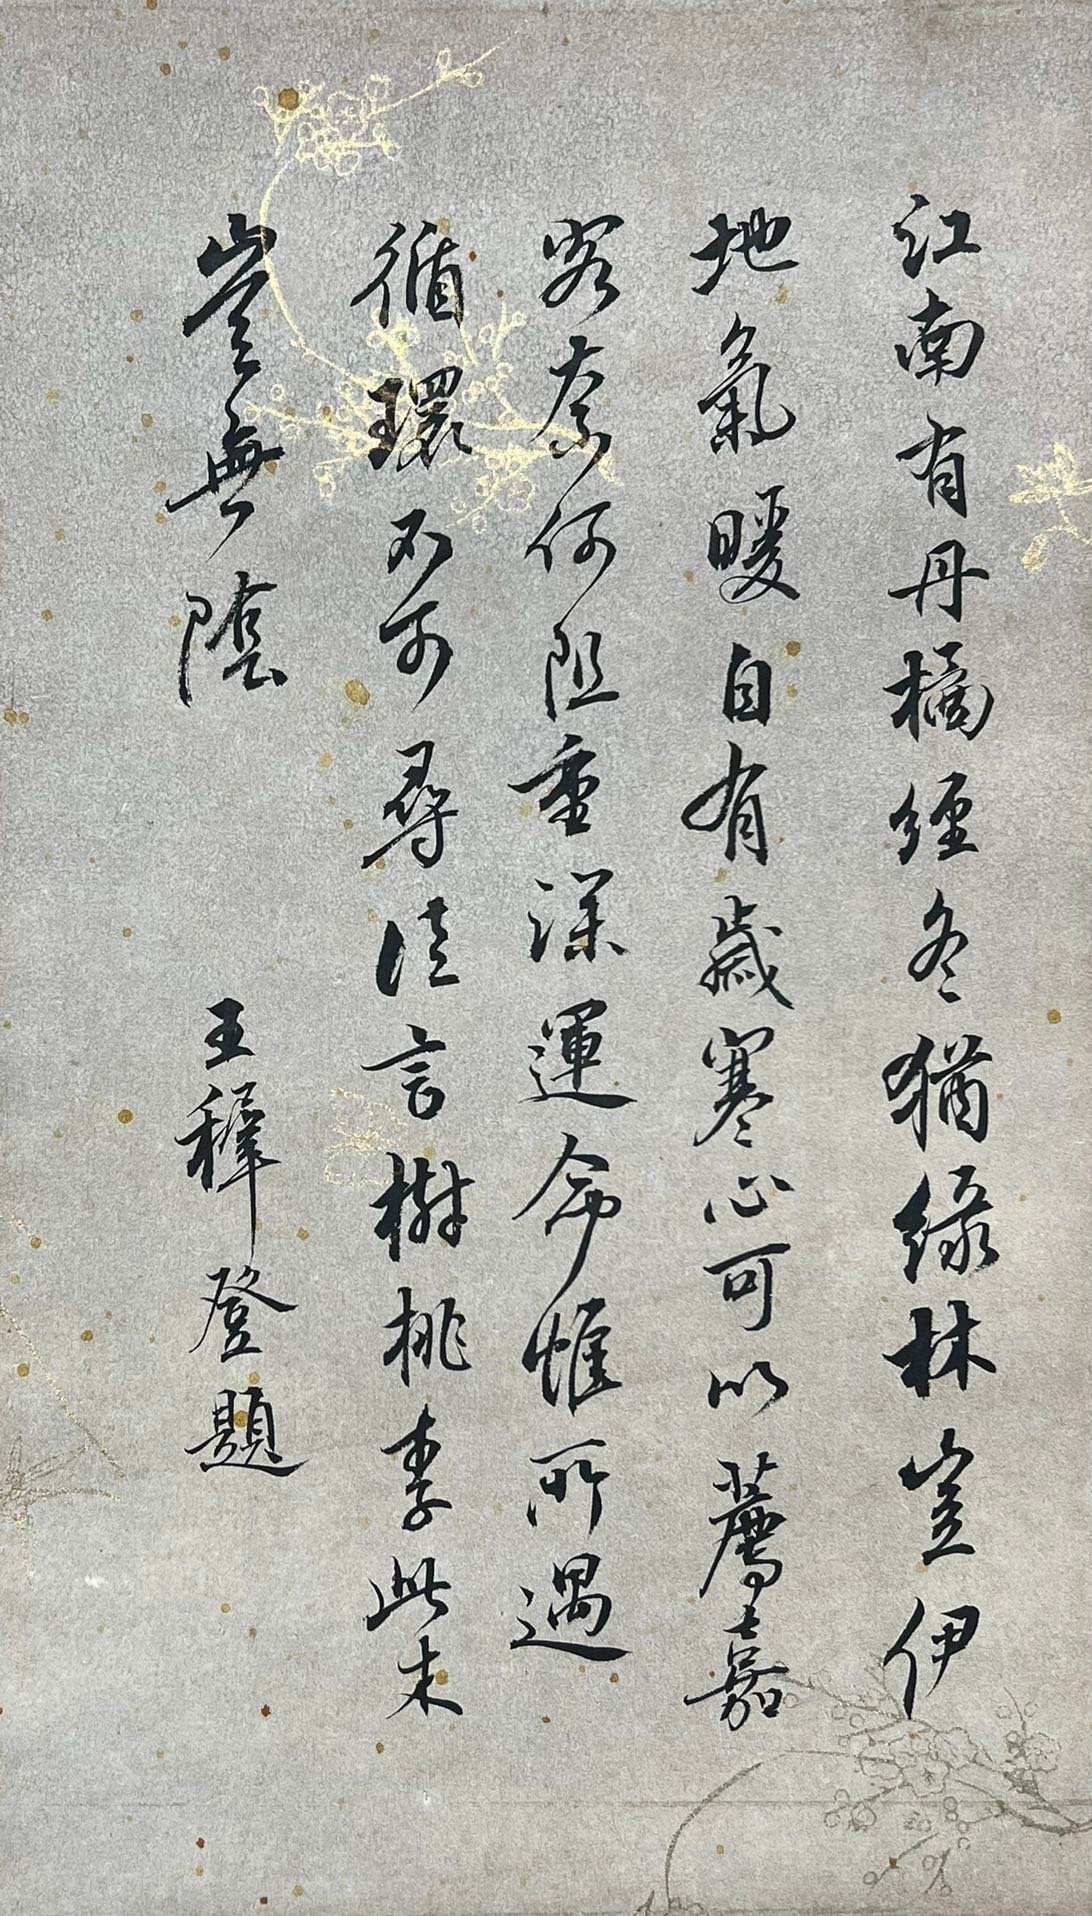 江南有丹橘經冬猶綠林豈伊
地氣暖自有歲寒心可以薦嘉
客奈何阻重深運命惟所遇
循環不可尋徒言樹桃李此木
豈無陰
王穉登題